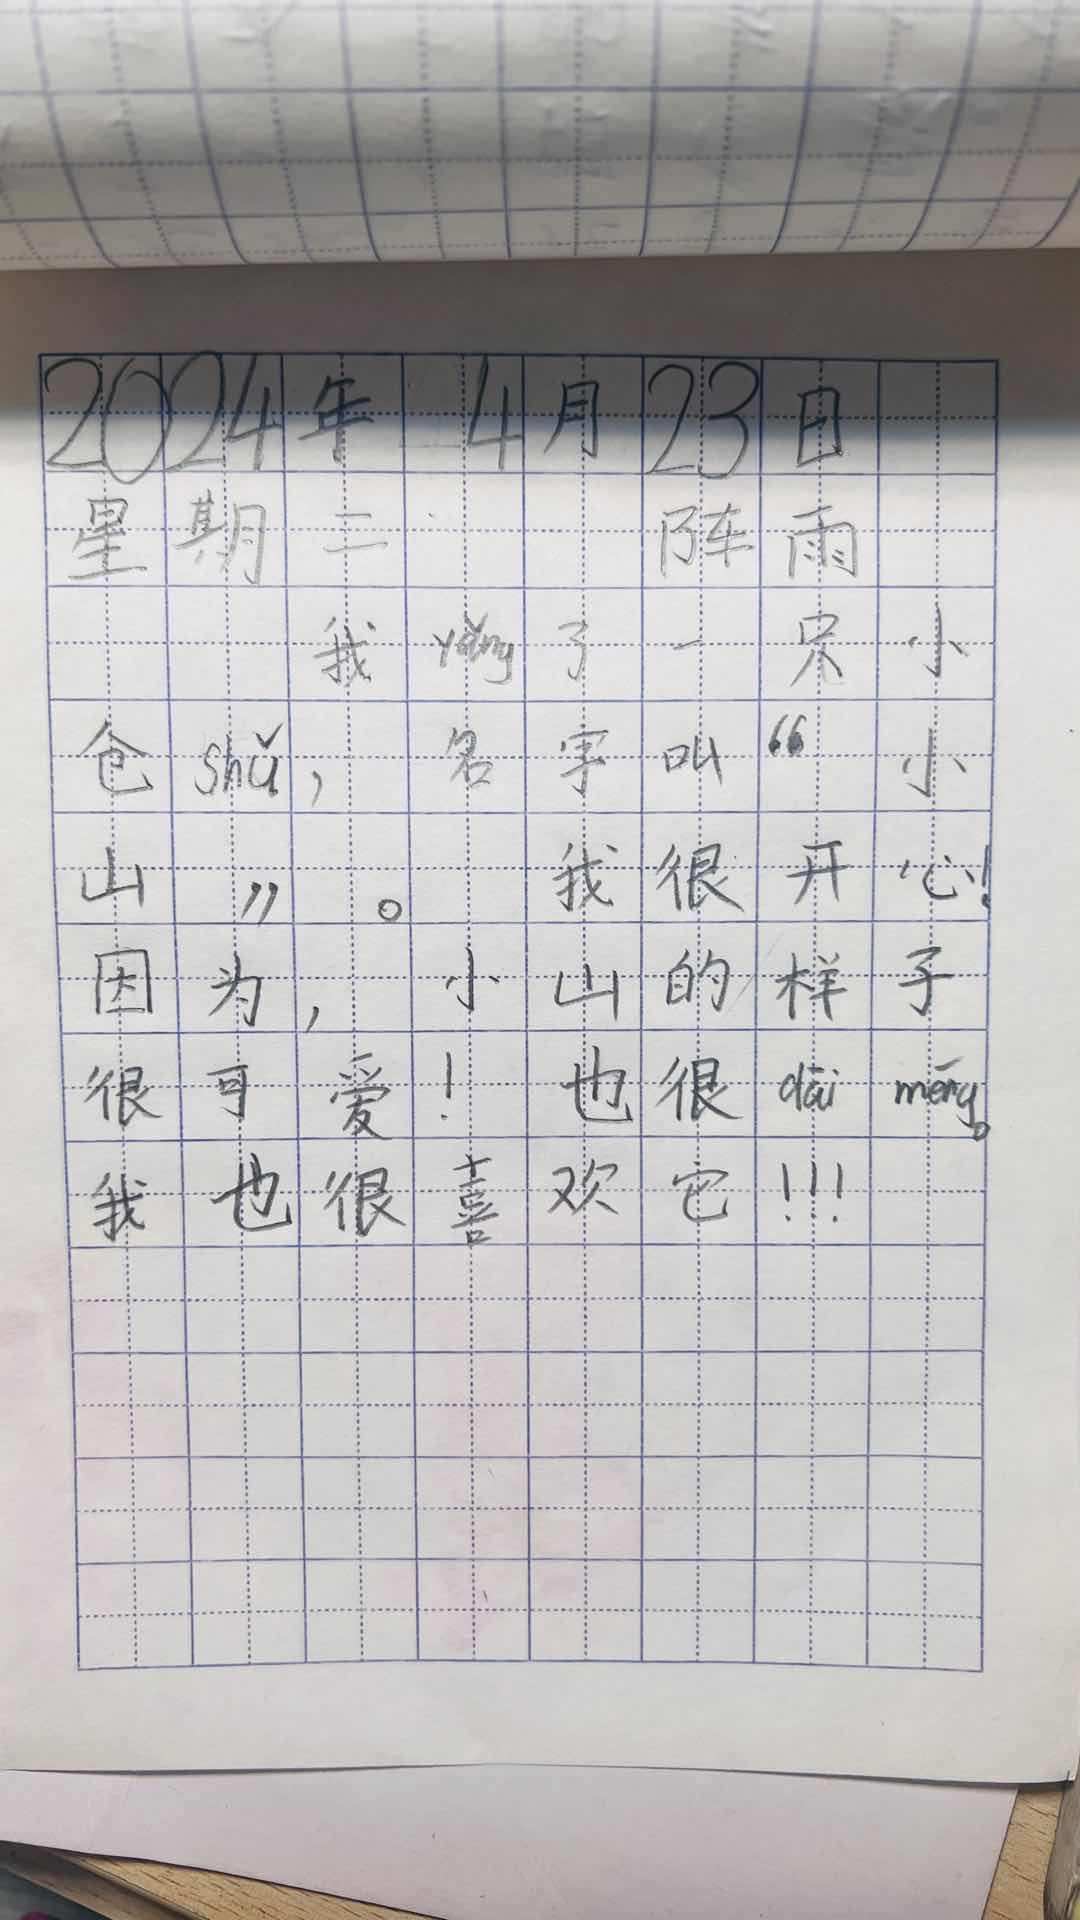 2024年 4月23日
星期二 阵雨
我yǎng了一只小
仓shǔ，名字叫“小
山”。我很开心！
因为，小山的样子
很可爱！也很dāi méng。
我也很喜欢它！！！